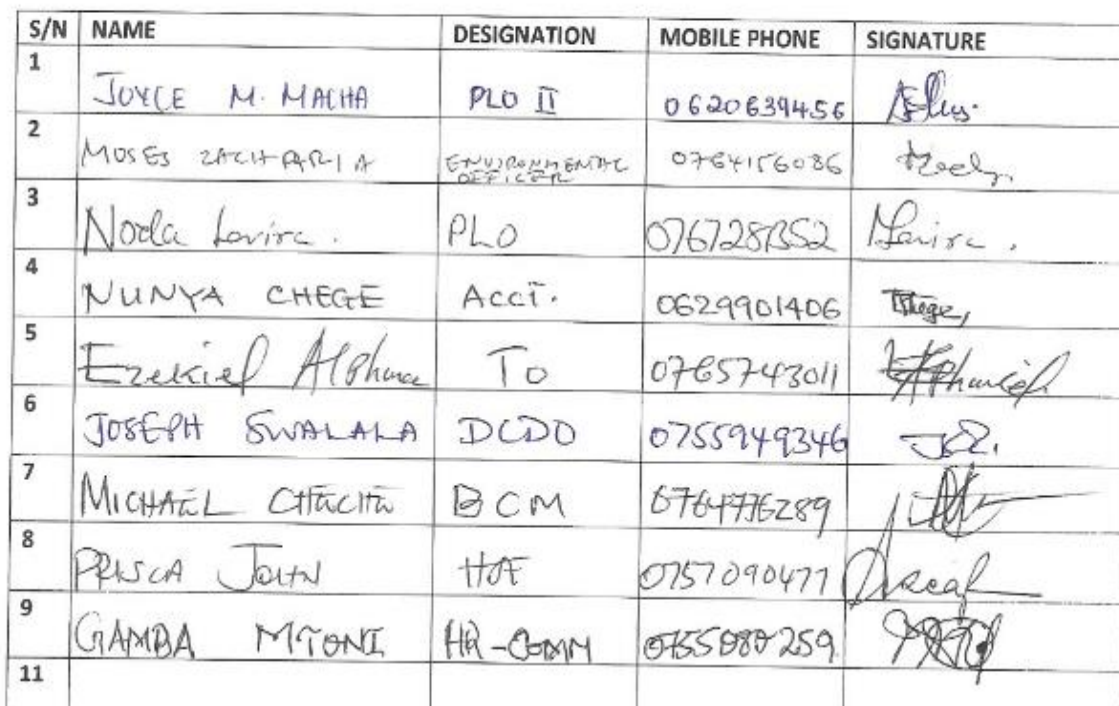 S/N NAME DESIGNATION MOBILE PHONE SIGNATURE
1 JOYCE M. MACHA PLO II 0620639456
2 MOSES ZACHARIA ENVIRONMENTAL OFFICER 0764156086
3 Noela Lavira. PLO
4 NUNYA CHEGE ACCT. 0629901406
5 Ezekiel TO 0765743011
6 JOSEPH SWALALA DCDO 0755949346
7 MICHAEL BCM
8 PRISCA JOHN 0757090477
9 GAMBA MTONI HR-COMM
11